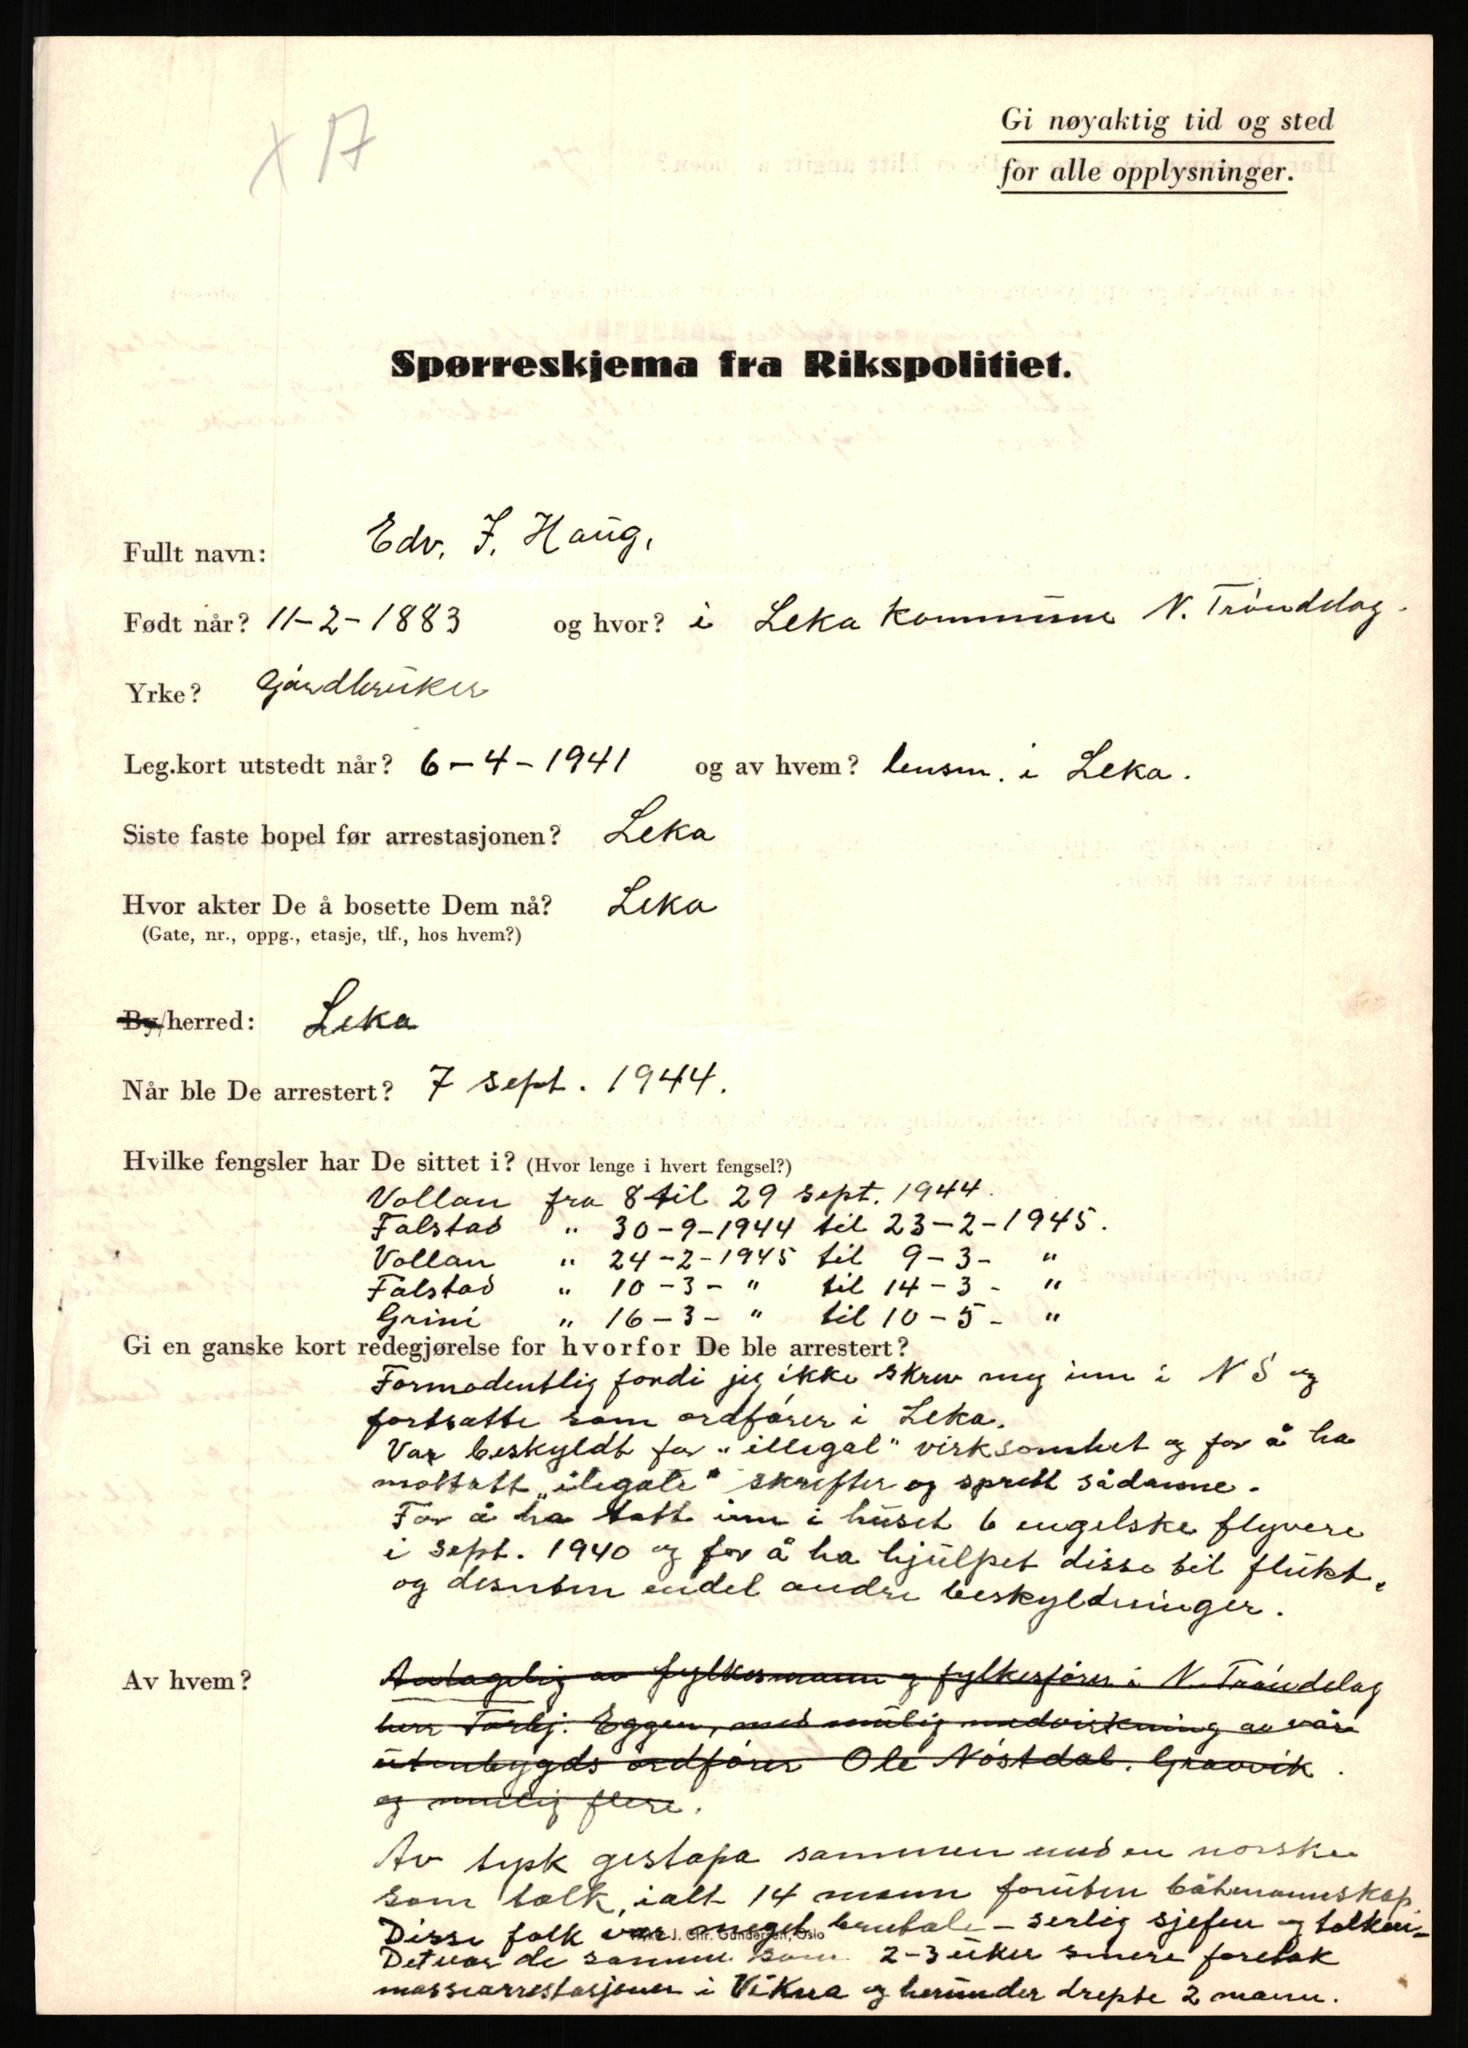 X 17
Gi nøyaktig tid og sted
for alle opplysninger.
Spørreskjema fra Rikspolitiet.
Fullt navn: Edv. F. Haug.
Født når? 11-2-1883 og hvor? i Leka kommune N. Trøndelag.
Yrke? Gårdbruker
Leg.kort utstedt når? 6-4-1941 og av hvem? lensm. i Leka.
Siste faste bopel før arrestasjonen? Leka
Hvor akter De å bosette Dem nå? Leka
(Gate, nr., oppg., etasje, tlf., hos hvem?)
By/herred: Leka
Når ble De arrestert? 7 sept. 1944.
Hvilke fengsler har De sittet i? (Hvor lenge i hvert fengsel?)
Vollan fra 8 til 29 sept. 1944.
Falstad " 30-9-1944 til 23-2-1945.
Vollan " 24-2-1945 til 9-3- "
Falstad " 10-3- " til 14-3- "
Grini " 16-3- " til 10-5- "
Gi en ganske kort redegjørelse for hvorfor De ble arrestert?
Formodentlig fordi jeg ikke skrev meg inn i N S og
fortsatte som ordfører i Leka.
Var beskyldt for "illegal" virksomhet og for å ha
mottatt "ilegale" skrifter og spredt sådanne.
For å ha tatt inn i huset 6 engelske flyvere
i sept. 1940 og for å ha hjulpet disse til flukt.
og desuten endel andre beskyldninger.
Av hvem? Antagelig av fylkesmann og fylkesfører i N. Trøndelag
herr Torbj. Eggen, med mulig medvirkning av våre
utenbygds ordfører Ole Nøstdal, Gravvik.
og mulig flere.
Av tysk gestapo sammen med en norske
som tolk, ialt 14 mann foruten båtmannskap
Disse folk var meget brutale - serlig sjefen og tolken -
J. Chr. Gundersen, Oslo
Det var de samme som 2-3 uker senere foretok
massearrestasjoner i Vikna og herunder drepte 2 mann.